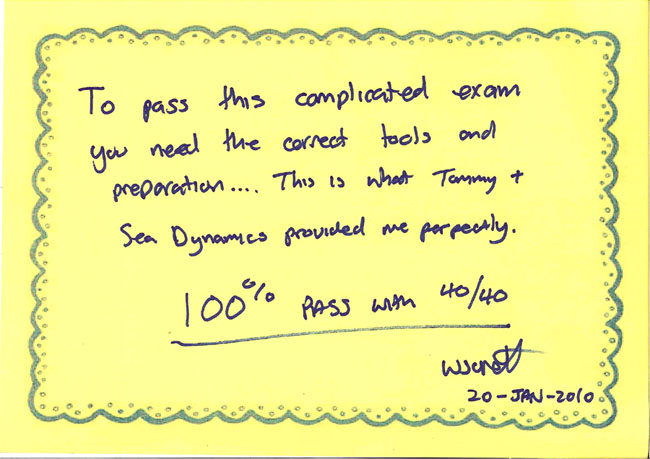 To pass this complicated exam
you need the correct tools and
preparation.... This is what Tammy +
Sea Dynamics provided me perpectly.
100% PASS WITH 40/40
20-JAN-2010